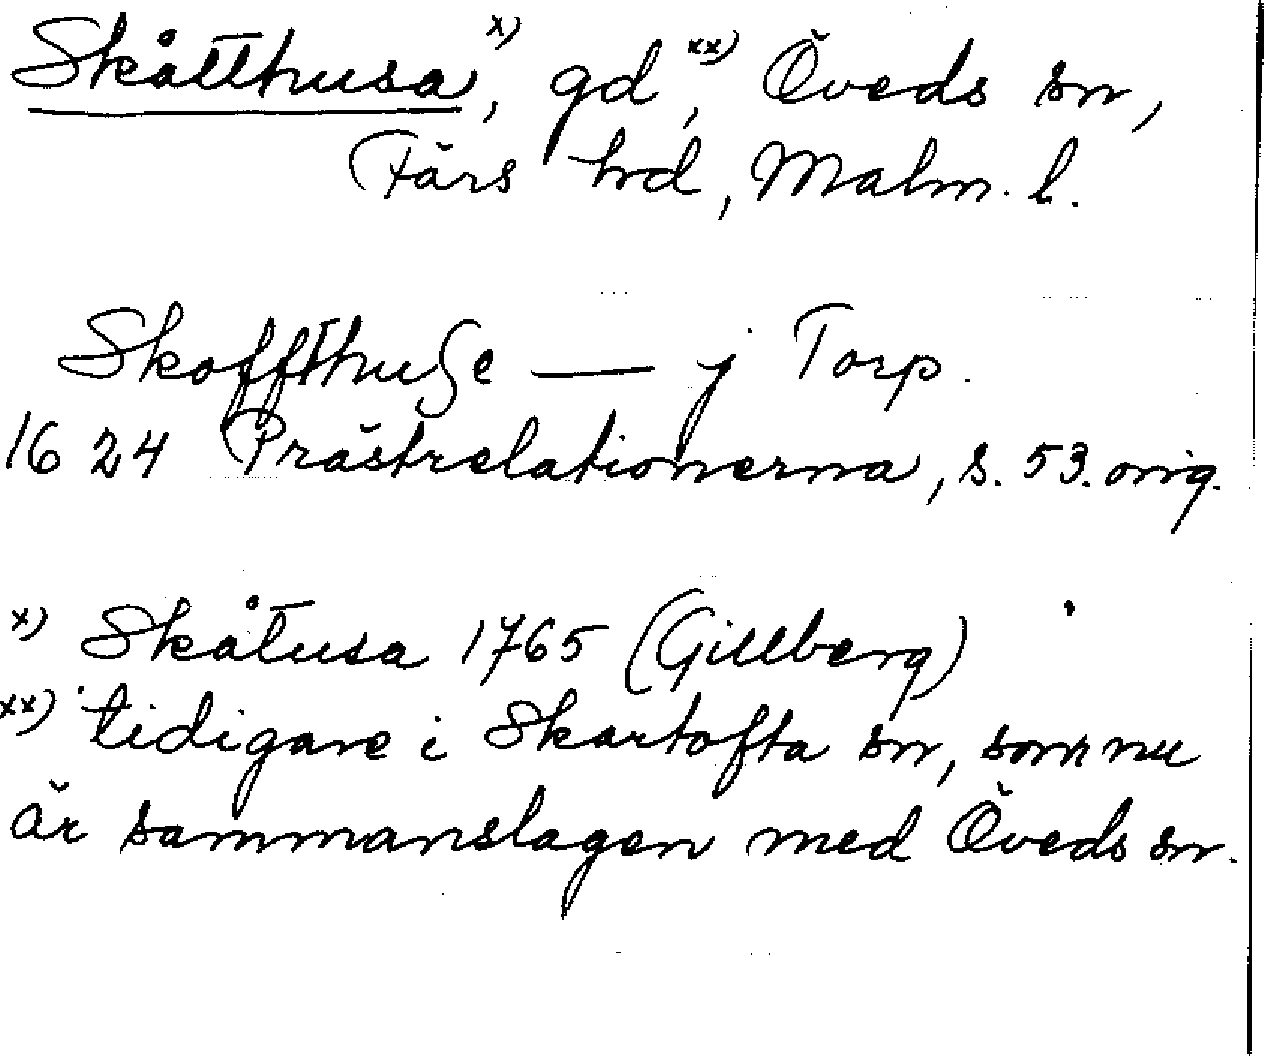 Skåtthusa, x) gd, xx) Öveds sn,
Färs hd, Malm. l.
Skoffthuſe — j Torp.
1624 Prästrelationerna, s. 53. orig.
x) Skåtusa 1765 (Gillberg)
xx) tidigare i Skartofta sn, som nu
är sammanslagen med Öveds sn.